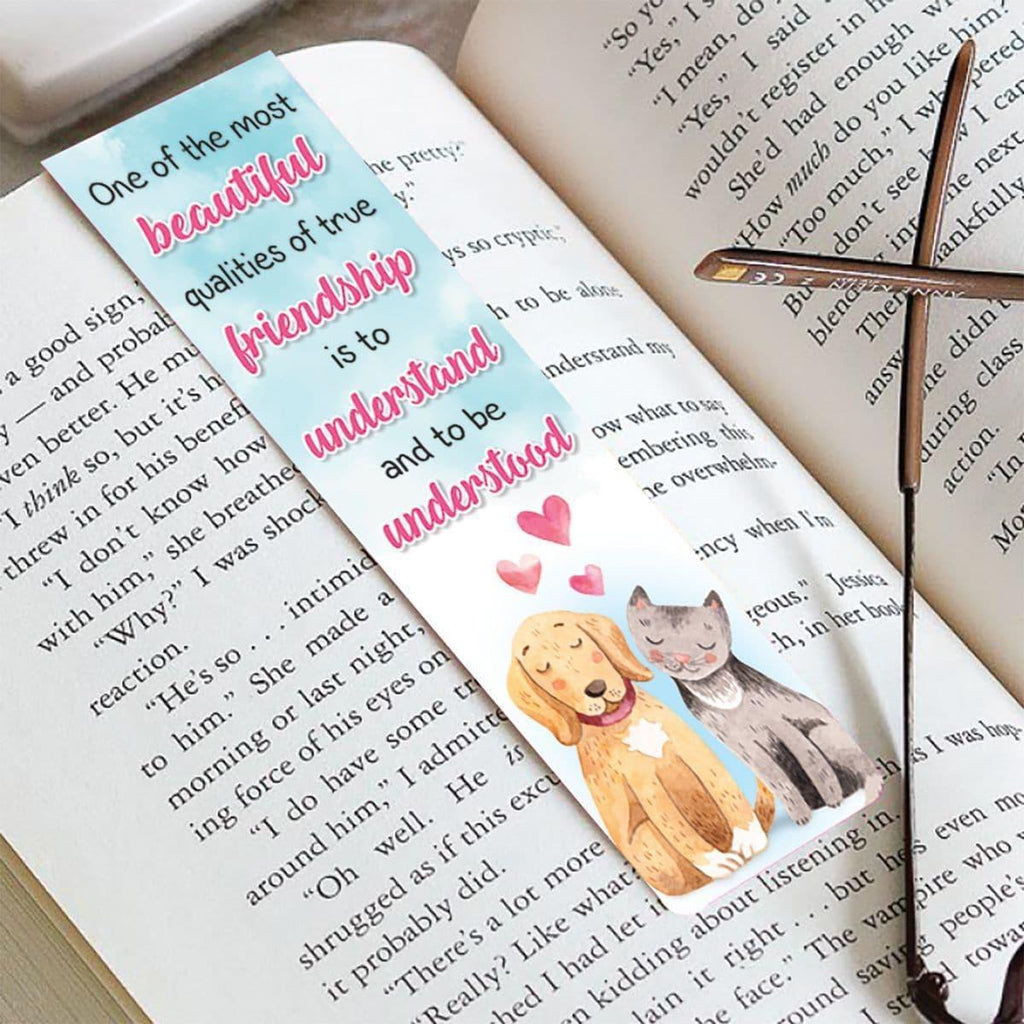 One of the most
beautiful
qualities of true
friendship
is to
understand
and to be
understood
a good sign,
y — and probab
ven better. He mu
"I think so, but it's h
threw in for his benefi
"I don't know how
with him," she breathe
"Why?" I was shock
reaction.
"He's so . . . intimid
to him." She made a
morning or last night,
ing force of his eyes on
"I do have some tr
around him," I admitte
"Oh well. He is
shrugged as if this excu
it probably did.
"There's a lot more
"Really? Like what
hed I had let
en kidding about listening in.
lain it right . . . but he's even mo
he face." The vampire who
round saving people's
I toward
he pretty?"
y."
ys so cryptic,"
h to be alone
nderstand my
ow what to say
embering this
he overwhelm-
ency when I'm
geous." Jessica
h, in her book
s I was hop-
"So yo
"Yes," I s
"I mean, do
"Yes," I said
wouldn't register in h
She'd had enough
"How much do you like him
"Too much," I whispered
don't see how I can
But
blending
in
the next
Then
hankfully
answ
she didn't
during class
action.
"In
Mo
ANNA
CE